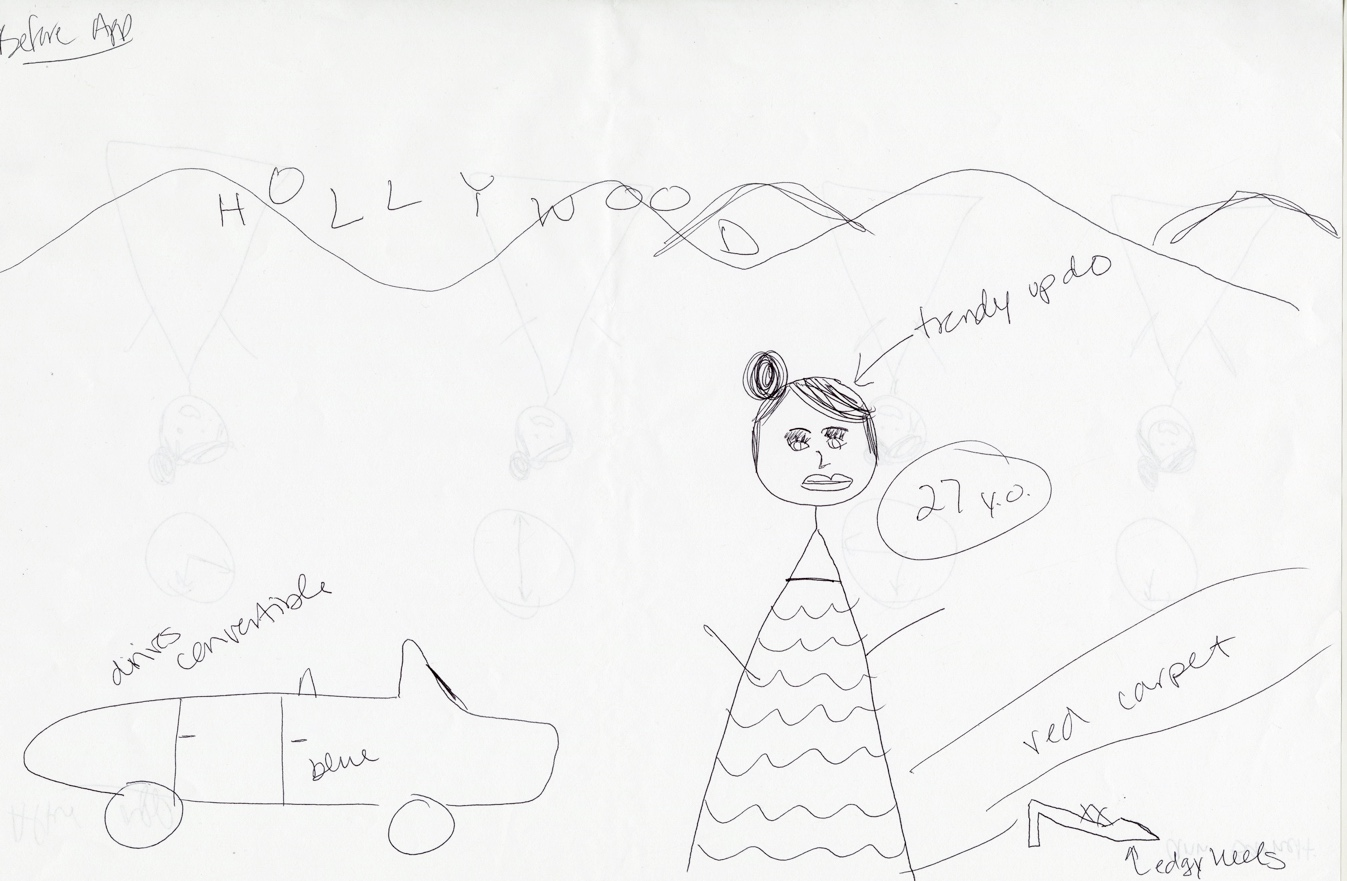 Before App
HOLLYWOOD
trendy updo
27 y.o.
drives
convertible
blue
red carpet
edgy heels